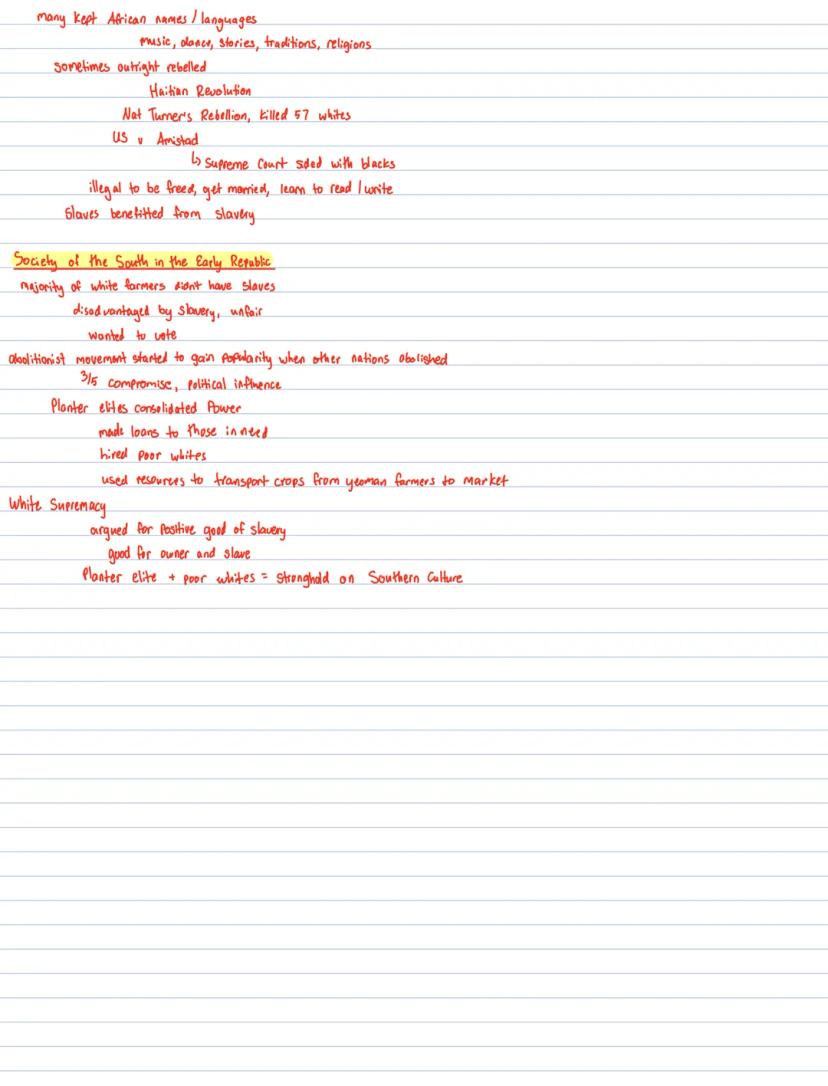 many kept African names / languages
music, dance, stories, traditions, religions
sometimes outright rebelled
Haitian Revolution
Nat Turner's Rebellion, killed 57 whites
US v Amistad
↳ Supreme Court sided with blacks
illegal to be freed, get married, learn to read / write
Slaves benefitted from slavery
Society of the South in the Early Republic
majority of white farmers didn't have slaves
disadvantaged by slavery, unfair
wanted to vote
abolitionist movement started to gain popularity when other nations abolished
3/5 compromise, political influence
Planter elites consolidated power
made loans to those in need
hired poor whites
used resources to transport crops from yeoman farmers to market
White Supremacy
argued for positive good of slavery
good for owner and slave
Planter elite + poor whites = stronghold on Southern Culture